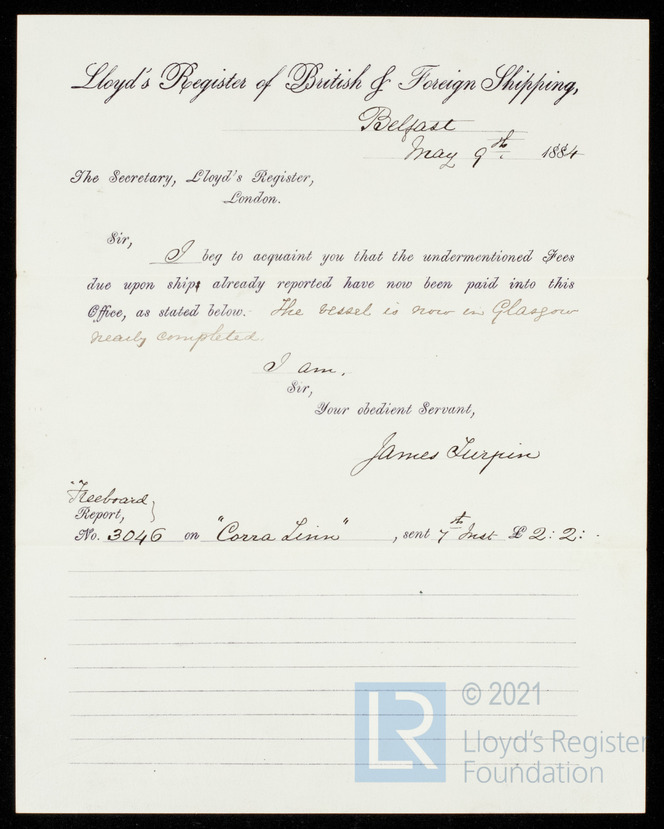 Lloyd's Register of British & Foreign Shipping,
Belfast
May 9th. 1884
The Secretary, Lloyd's Register,
London.
Sir,
I beg to acquaint you that the undermentioned Fees
due upon ships already reported have now been paid into this
Office, as stated below. The vessel is now in Glasgow
nearly completed.
I am,
Sir,
Your obedient Servant,
James Turpin
"Freeboard
Report,
No. 3046 on "Corra Linn", sent 7th Inst £2:2:.
LR
© 2021
Lloyd's Register
Foundation